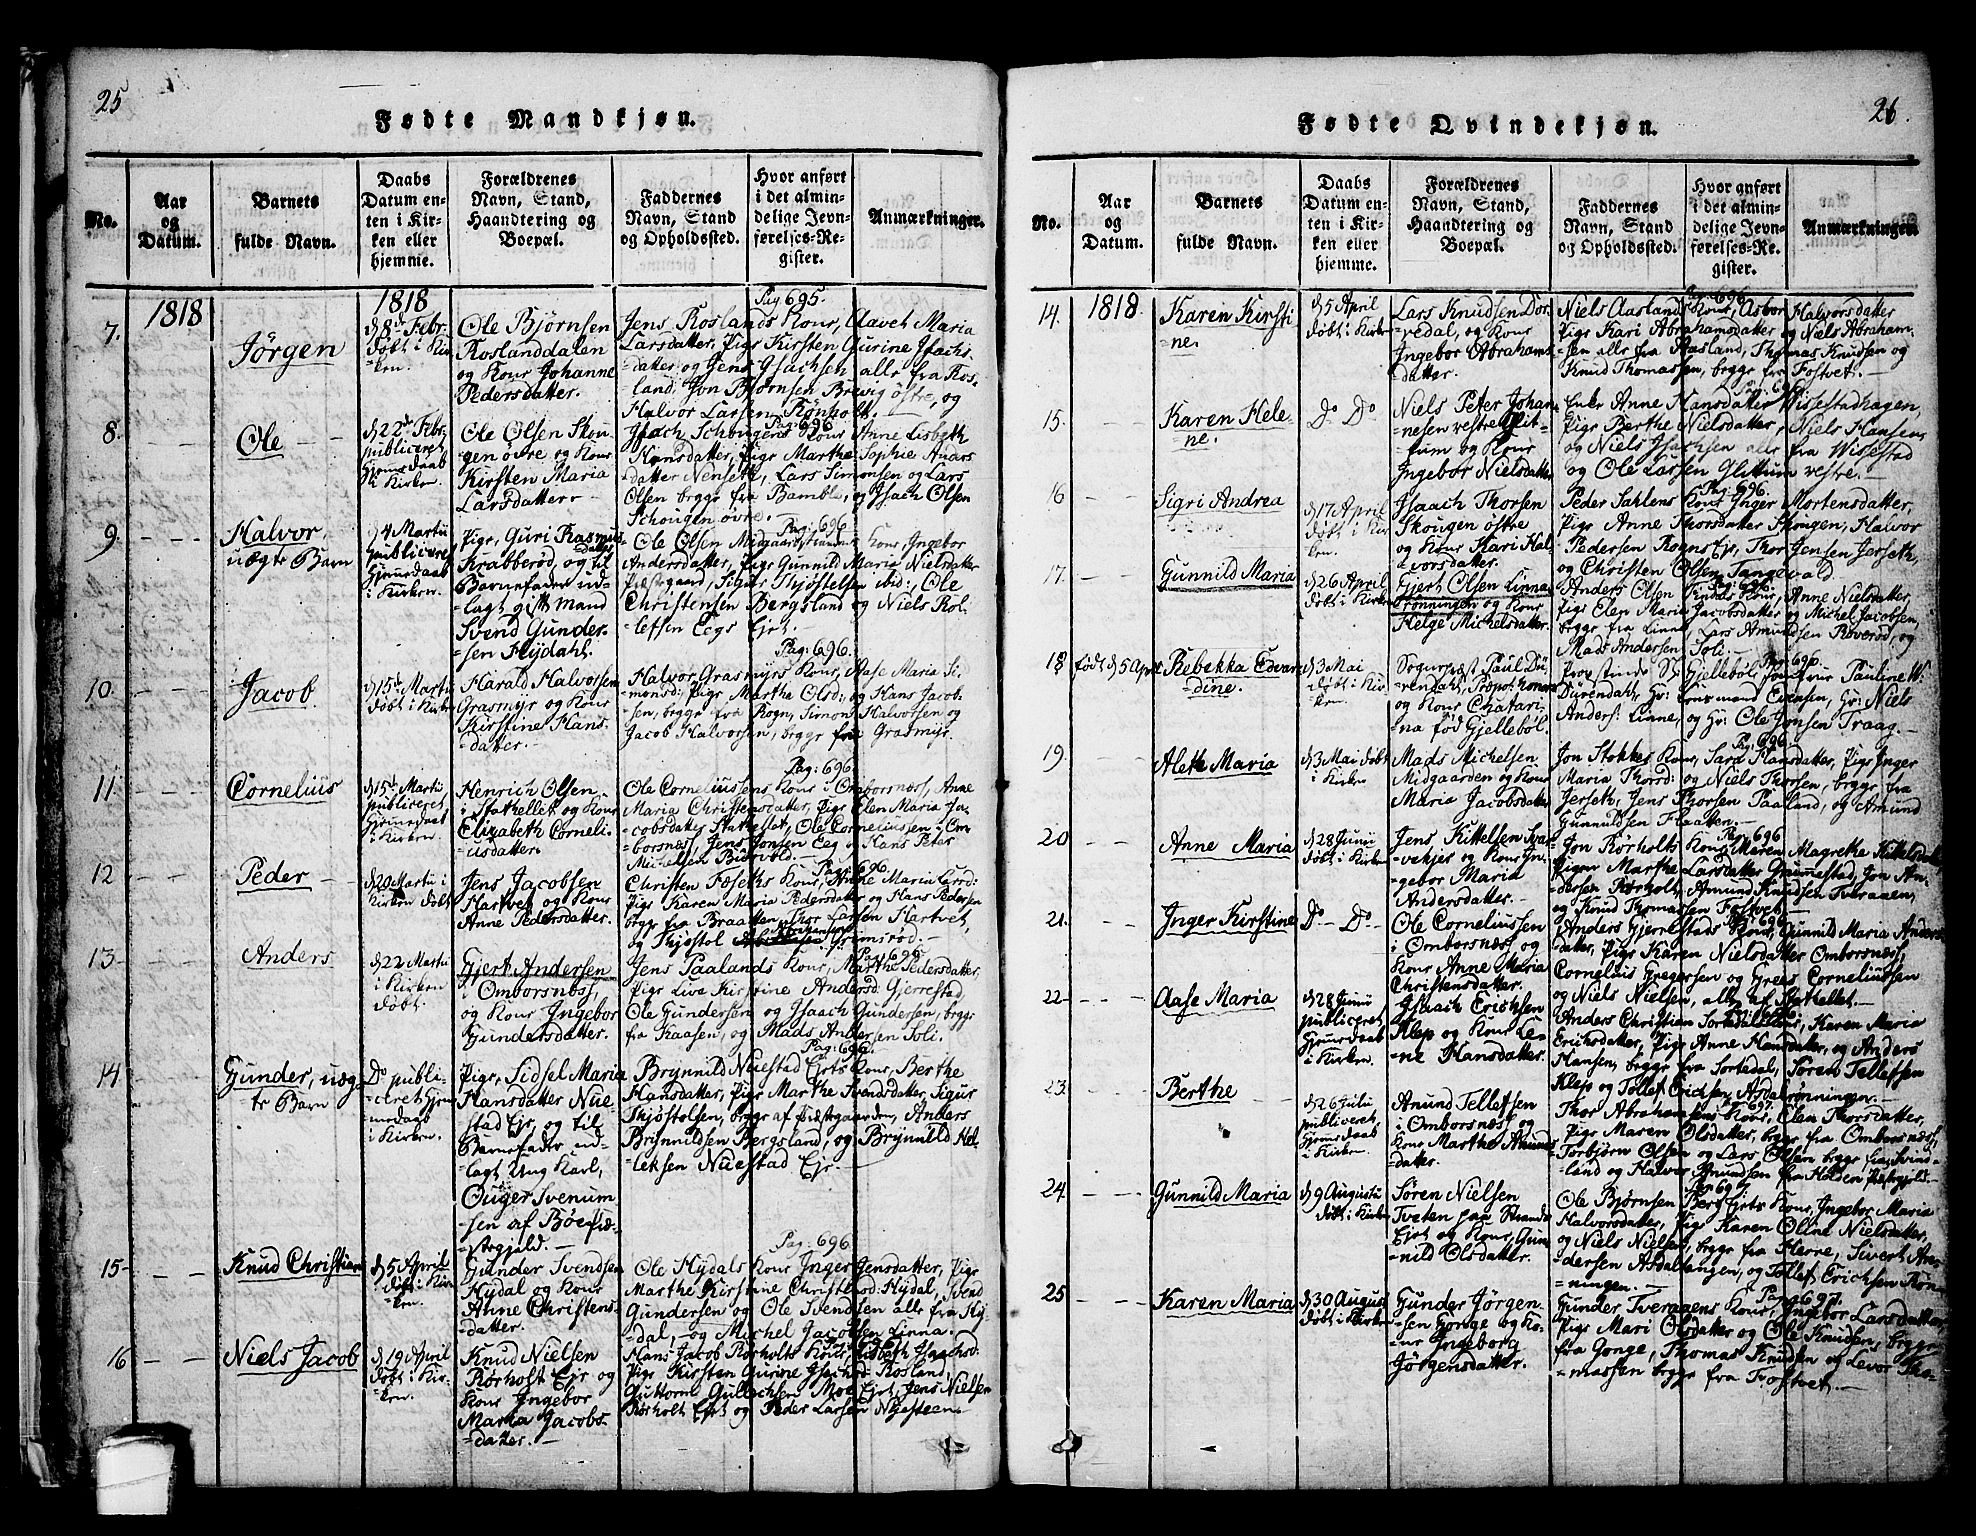 25
Fødte Mandkjøn.
No.
Aar
og
Datum.
Barnets
fulde Navn.
Daabs
Datum en-
ten i Kir-
ken eller
hjemme.
Forældrenes
Navn, Stand,
Haandtering og
Boepæl.
Faddernes
Navn, Stand
og Opholdssted.
Hvor anført
i det almin-
delige Jevn-
førelses-Re-
gister.
Anmærkninger.
7.
1818
Jörgen
1818
d 8de Febr.
døbt i Kir-
-ken.
Ole Bjørnsen
Roslanddalen
og Konr Johanne
Pedersdatter.
Pag 695.
Jens Roslands Konr, Aavet Maria
Larsdatter, Pige Kirsten Gurine Isachs-
-datter og Jens Isachsen alle fra Ros-
land, Jon Bjørnsen Brevig östre, og
Halvor Larsen Rønholt.
8.
Ole
d 22de Febr.
publiceret
Hjemedaab
i Kirken.
Ole Olsen Skou-
gen øvre og Konr
Kirsten Maria
Larsdatter.
Pag: 696
Isach Schougens Konr Anne Lisbeth
Hansdatter, Pige Marthe Sophie Anders
datter Nenseth, Lars Simonsen og Lars
Olsen begge fra Bamble, og Isach Olsen
Schougen øvre.
9.
Halvor,
uægte Barn
d 4 Martii
publiceret
Hjemedaab
i Kirken.
Pige, Guri Rasmus
datter
Krabberød, og til
Barnefader ud-
-lagt gift Mand
Svend Gunder-
sen Hydahl.
Pag. 696
Ole Olsen Midgaardstrandens Konr, Ingebor
Andersdatter, Pige Gunnild Maria Nielsdatter
Præstegaard, Sigur Thjøstelsen ibid:, Ole
Christensen Bergsland og Niels Rol-
lefsen Eegs Ejet.
10.
Jacob
d 15de Martii
døbt i Kirken
Harald Halvorsen
Grasmyr og Konr
Kirstine Hans-
datter.
Pag: 696.
Halvor Grasmyrs Konr, Aase Maria Si-
monsd: Pige Marthe Olsd: og Hans Jacob-
sen, begge fra Rogn, Simon Halvorsen og
Jacob Halvorsen, begge fra Grasmyr.
11.
Cornelius
d 15de Martii
publiceret,
Hjemedaab
i Kirken.
Henrich Olsen
i Stathellet og Konr
Elizabeth Corneli-
usdatter.
Pag: 696
Ole Corneliussens Konr i Omborsnæss, Anne
Maria Christensdatter, Pige Elen Maria Ja-
-cobsdatter Stathellet, Ole Corneliussen i Om-
borsnæs, Jens Jonsen Eeg og Hans Peter
Michelsen Biørvold.
12
Peder
d 20 Martii i
Kirken døbt
Jens Jacobsen
Hartvet og Konr
Anne Pedersdatter.
Pag 696
Christen Føseths Konr, Anne Maria
Pige Karen Maria Pedersdatter og Hans Pedersen
begge fra Braatten, Thor Larsen Hartvet,
og Thjøstol Grimsrød.
13.
Anders
d 22 Martii
i Kirken
døbt
Gjert Andersen
i Omborsnæss,
og Konr Ingebor
Gundersdatter.
Pag 696.
Jens Paalands Konr, Marthe Pedersdatter,
Pige Liva Kirstine Andersd: Gjerrestad,
Ole Gundersen og Isaach Gundersen, begge
fra Kaasen, og Mads Andersen Soli.
14
Gunder, uæg-
te Barn
Do publi-
-ceret Hjem-
medaab
i Kirken.
Pige, Sidsel Maria
Hansdatter Nue-
stad Ejr, og til
Barnefader ud-
-lagt Ung Karl,
Ouger Svenum-
sen af Bøe Præ-
-stegjeld.
Pag: 696.
Brynnild Nuestad Ejets Konr, Berthe
Hansdatter, Pige Marthe Svendsdatter, Sigur
Thjøstolsen, begge af Præstgaarden, Anders
Brynnildsen Bergsland, og Brynnild Hel-
leksen Nuestad Ejr.
15
Knud Christian
d 5 April
døbt i Kir-
-ken.
Gunder Svendsen
Hydal og Konr
Anne Christens-
datter.
Pag: 696
Ole Hydals Konr Inger Jensdatter, Pige
Marthe Kirstine Christensd: Hydal, Svend
Gundersen og Ole Svendsen alle fra Hy-
dal, og Michel Jacobsen Linna.
16
Niels Jacob
d 19 April
døbt i Kir-
-ken.
Knud Nielsen
Rørholt Ejr og
Konr Ingebor
Maria Jacobs-
datter.
Hans Jacob Rörholts Konr Lisbeth Isachsd:
Pige Kirsten Gurine Isachsd: Rosland,
Guttorm Gullachsen Moe Ejet, Jens Nielsen
Rørholt Ejet og Peder Larsen Nyesteen.
26.
Fødte Qvindekjøn.
No.
Aar
og
Datum.
Barnets
fulde Navn.
Daabs
Datum en-
ten i Kir-
ken eller
hjemme.
Forældrenes
Navn, Stand,
Haandtering og
Boepæl.
Faddernes
Navn, Stand
og Opholdssted.
Hvor anført
i det almin-
delige Jevn-
førelses-Re-
gister.
Anmærkninger.
14.
1818.
Karen Kirsti
ne.
d 5 April
døbt i Kirken
Lars Knudsen Dør-
vedal, og Konr
Ingebor Abrahams
datter.
Pag: 696
Niels Aaslands Konr, Asbor Halvorsdatter
Pige Kari Abrahamsdatter og Niels Abraham-
sen alle fra Aasland, Thomas Knudsen og
Knud Thomassen, begge fra Fostvet.
15.
Karen Hele-
ne.
Do Do
Niels Peter Johan-
-nesen vestre Glit-
tum og Konr
Ingebor Nielsdatter
Pag. 696
Enke Anne Hansdatter Wissestadhagen,
Pige Berthe Nielsdatter, Niels Hansen
og Niels Isachsen alle fra Wissestad
og Ole Larsen Glittum vestre.
16
Sigri Andrea
d 17 April
døbt i Kir-
ken.
Isaach Thorsen
Skougen östre
og Konr Kari Hal-
vorsdatter.
Pag: 696.
Peder Sahlens Konr Inger Mortensdatter,
Pige Anne Thorsdatter Skougen, Halvor
Pedersen Rogns Ejr, Thor Jensen Jerseth,
og Christen Olsen Tangevald.
17.
Gunnild Maria
d 26 April
døbt i Kirken
Gjert Olsen Linna-
-rønningen og Konr
Helge Michelsdatter.
Pag: 696
Anders Olsen Konr, Anne Nielsdatter,
Pige Elen Maria Jacobsdatter og Michel Jacobsen,
begge fra Linna, Lars Amundsen Røverød, og
Mads Andersen Soli.
18
født d 5 April
Rebekka Edvar-
dine.
d 3 Mai
døbt i Kir-
ken.
Sognepræst Paul Dü-
vendahl, Præpos: honor:
og Konr Chatari-
na fød Gjellebøl.
Pag 696.
Provstinde Gjellebøl, Jomfrue Pauline W.
Dürendahl, Hr: Evensen, Hr: Niels
Anders: Linne, og Hr: Ole Jonsen Traag.
19.
Aleth Maria
d 3 Mai døbt
i Kirken
Mads Michelsen
Midgaarden og Konr
Maria Jacobsdatter
Pag. 696.
Jon Stokkes Konr, Sara Hansdatter, Pige Inger
Maria Thorsd: og Niels Thorsen, begge fra
Jerseth, Jens Thorsen Paaland, og Amund
Gunnuldsen Flaatten.
20
Anne Maria
d 28 Junii
døbt i Kirken
Jens Kittelsen Sva-
vekjer og Konr In-
gebor Maria
Andersdatter.
Pag. 696
Jon Rörholts Konr, Maren Magrethe Kittelsdatter
Pigen Marthe Larsdatter Graumestad, Jon An-
dersen Rørholt, Amund Knudsen Tveraaen,
og Knud Thomassen Fostvet.
21.
Inger Kirstine
Do Do
Ole Corneliussen
i Omborsnæss og
Konr Anne Maria
Christensdatter.
Pag 696
Anders Gjerrestads Konr, Gunnild Maria Anders
datter, Pige Karen Nielsdatter Omborsnæss,
Cornelius Gregersen og Grees Corneliussen
og Niels Nielsen, alle af Stathellet.
22
Aase Maria
d 28 Junii
publiceret
Hjemedaab
i Kirken
Isaach Erichsen
Klep og Konr Le-
ne Hansdatter.
Anders Christian Sortedals Konr, Karen Maria
Erichsdatter, Pige Anne Hansdatter, og Anders
Hansen, begge fra Sortedal, Søren Tellefsen
Klep og Tollef Erichsen Asdalrønningen.
23
Berthe
d 26 Julii
publiceret
Hjemedaab
i Kirken.
Amund Tellefsen
i Omborsnæs, og
Konr Marthe Amunds-
-datter.
Pag. 697.
Thor Abrahamsens Konr, Elen Thorsdatter,
Pige Maren Olsdatter, begge fra Omborsnæss,
Torbjörn Olsen og Lars Olsen begge fra Svind-
land og Halvor Knudsen fra Holsen Præstgjeld.
24.
Gunnild Maria
d 9 Augusti
døbt i Kirken
Søren Nielsen
Tveten paa Strands
Ejet og Konr Gun-
nild Olsdatter.
Pag 697
Ole Bjørnsen Berg Ejets Konr, Ingebor Maria
Halvorsdatter, Pige Karen Oline Nielsdatter,
og Niels Nielsen, begge fra Herre, Sivert An-
dersen Asdaltangen, og Tollef Erichsen Røn-
-ningen.
25
Karen Maria
d 30 August
døbt i Kirken
Gunder Jörgen-
sen Gonge og Ko-
nr Ingeborg
Jörgensdatter.
Pag: 697.
Gunder Tveraaens Konr, Ingebor Larsdatter,
Pige Mari Olsdatter og Ole Knudsen, begge
fra Gonge, Thomas Knudsen og Levor Tho-
massen begge fra Fostvet.